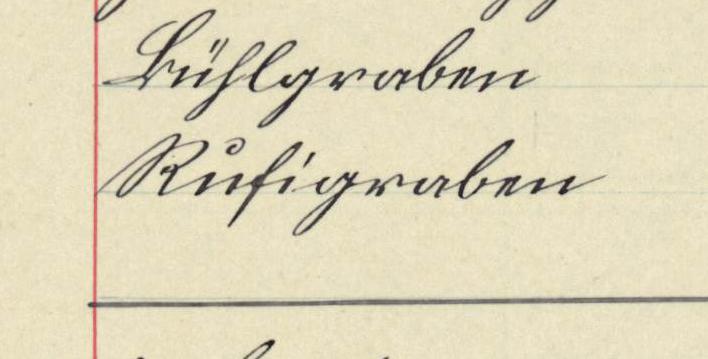 Bühlgraben
Rufigraben